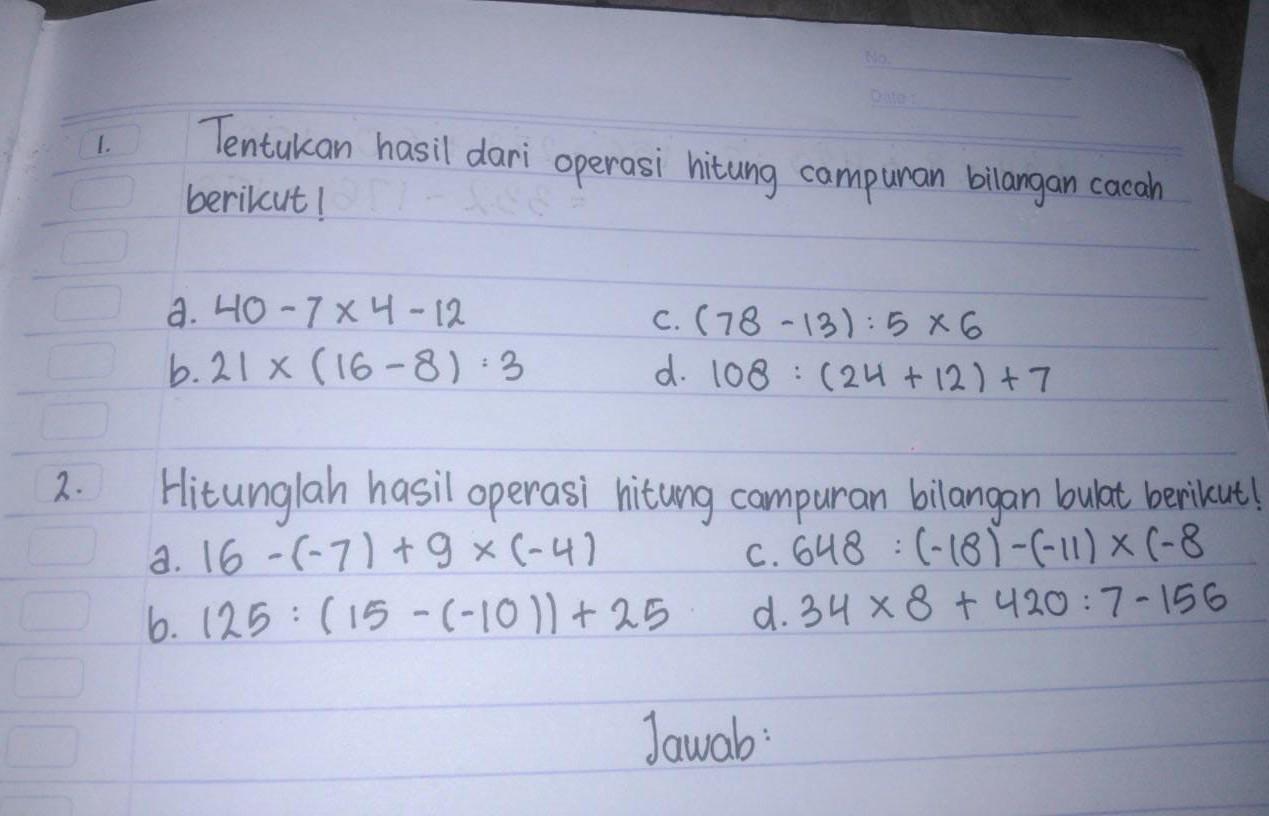 No.
Date:
1. Tentukan hasil dari operasi hitung campuran bilangan cacah
berikut!
a. 40 - 7 x 4 - 12 c. (78 - 13) : 5 x 6
b. 21 x (16 - 8) : 3 d. 108 : (24 + 12) + 7
2. Hitunglah hasil operasi hitung campuran bilangan bulat berikut!
a. 16 - (-7) + 9 x (-4) c. 648 : (-18) - (-11) x (-8
b. 125 : (15 - (-10)) + 25 d. 34 x 8 + 420 : 7 - 156
Jawab: